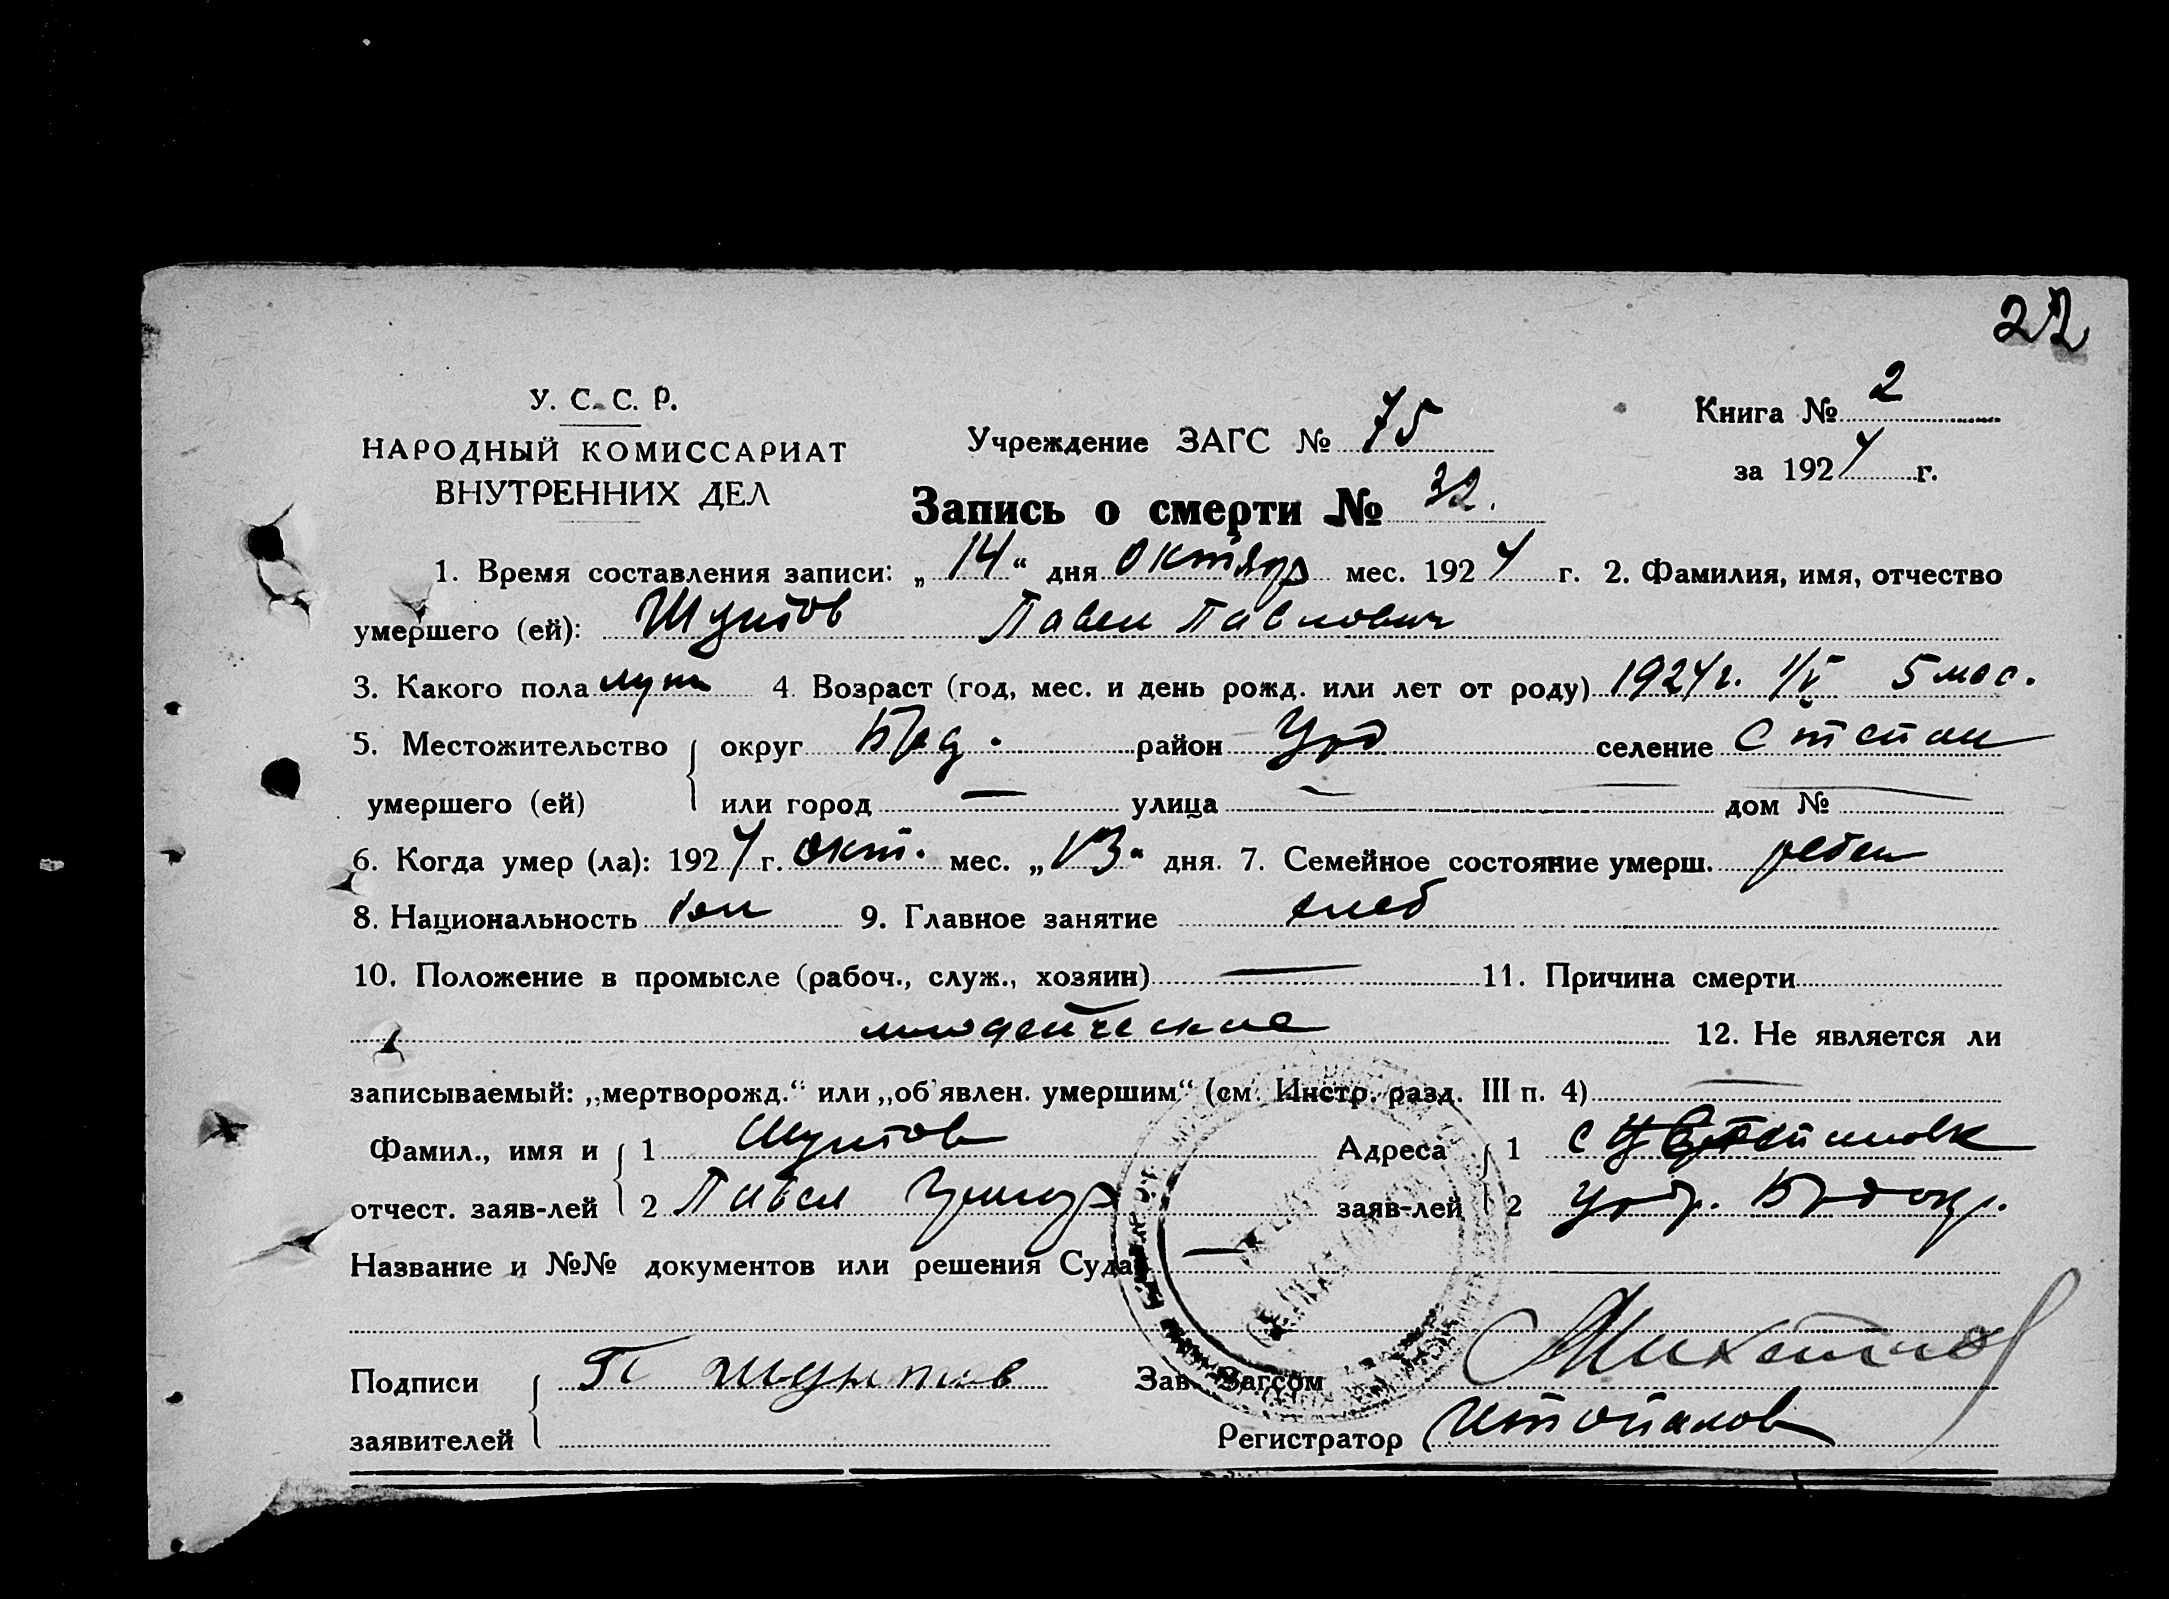 22
У. С. С. Р.
НАРОДНЫЙ КОМИССАРИАТ
ВНУТРЕННИХ ДЕЛ
Учреждение ЗАГС № 75
Книга № 2
за 1924 г.
Запись о смерти № 32.
1. Время составления записи: „14“ дня октябр мес. 1924 г. 2. Фамилия, имя, отчество
умершего (ей): Павел Павлович
3. Какого пола муж 4. Возраст (год, мес. и день рожд. или лет от роду) 1924 г. 1/V 5 мес.
5. Местожительство округ район селение
умершего (ей) или город — улица — дом № —
6. Когда умер (ла): 1924 г. окт. мес. „13“ дня. 7. Семейное состояние умерш. ребен
8. Национальность 9. Главное занятие хлеб
10. Положение в промысле (рабоч., служ., хозяин) — 11. Причина смерти
младенческие 12. Не является ли
записываемый: „мертворожд.“ или „об'явлен. умершим“ (см. Инстр. разд. III п. 4) —
Фамил., имя и 1 Адреса 1 с
отчест. заяв-лей 2 Павел заяв-лей 2
Название и №№ документов или решения Суда —
Подписи П Зав. Загсом
заявителей Регистратор